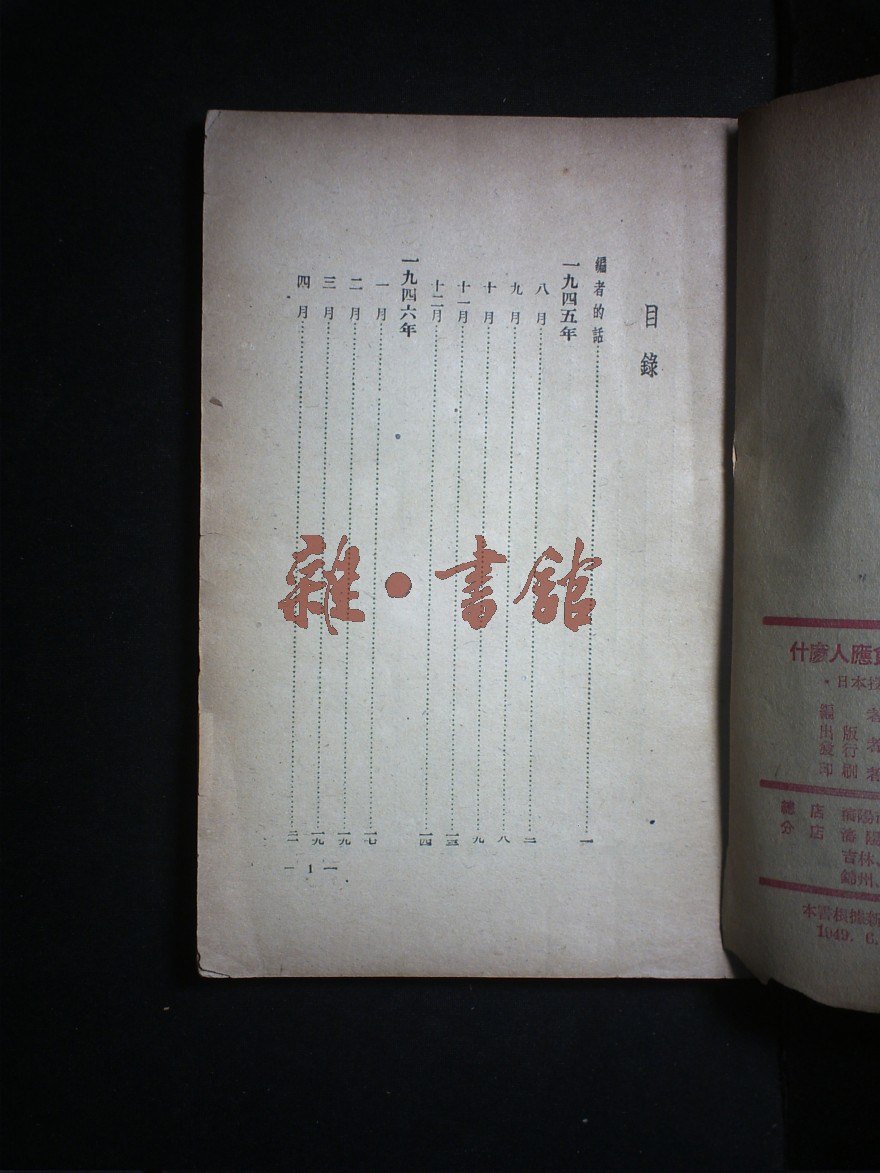 目錄
編者的話……一
一九四五年
八月……三
九月……八
十月……九
十一月……一三
十二月……一四
一九四六年
一月……一七
二月……一九
三月……一九
四月……二一
— 1 —
雜·書館
什麼人應
·日本
編者
出版者
發行
印刷者
總店 瀋陽市
分店 瀋陽
吉林、
錦州、
本書根據新
1949. 6.